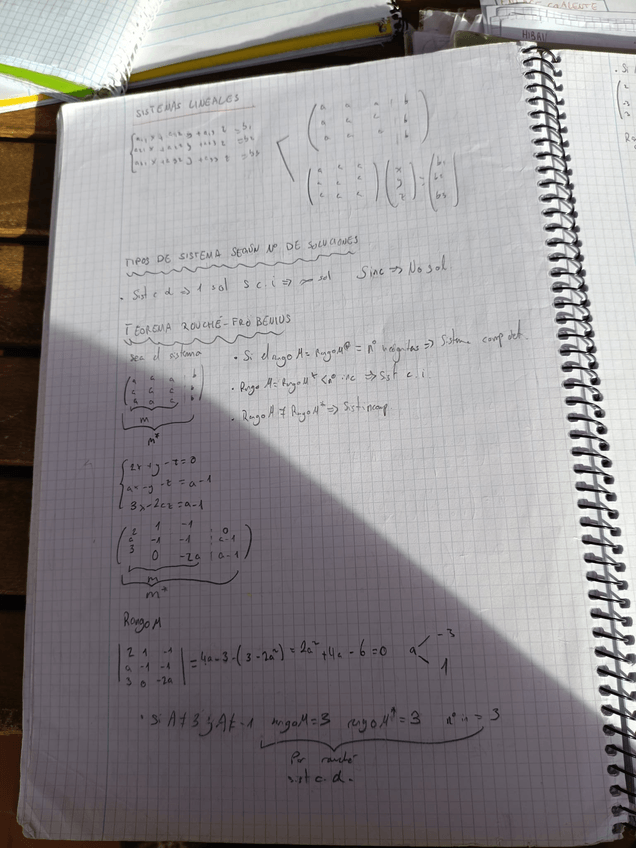 HIBRI
SISTEMAS LINEALES
( a a a | b )
( a a a | b )
( a a a | b )
TIPOS DE SISTEMA SEGÚN Nº DE SOLUCIONES
• Sist c d => 1 sol   S c. i => ∞ sol   Sinc => No sol
TEOREMA ROUCHÉ-FROBENIUS
sea el sistema
• Si el rango M = Rango M* = nº incógnitas => Sistema comp det.
• Rango M = Rango M* < nº inc => Sist c. i
• Rango M ≠ Rango M* => Sist incomp
M
M*
2x + y - z = 0
ax - y - z = a - 1
3x - 2az = a - 1
2 1 -1 | 0
a -1 -1 | a-1
3 0 -2a | a-1
M
M*
Rango M
| 2 1 -1 |
| a -1 -1 | = 4a - 3 - (3 - 2a²) = 2a² + 4a - 6 = 0   a < -3
| 3 0 -2a |   1
• Si A ≠ 3 y A ≠ -1   rango M = 3   rango M* = 3   nº in = 3
Por rouché
sist c. d.